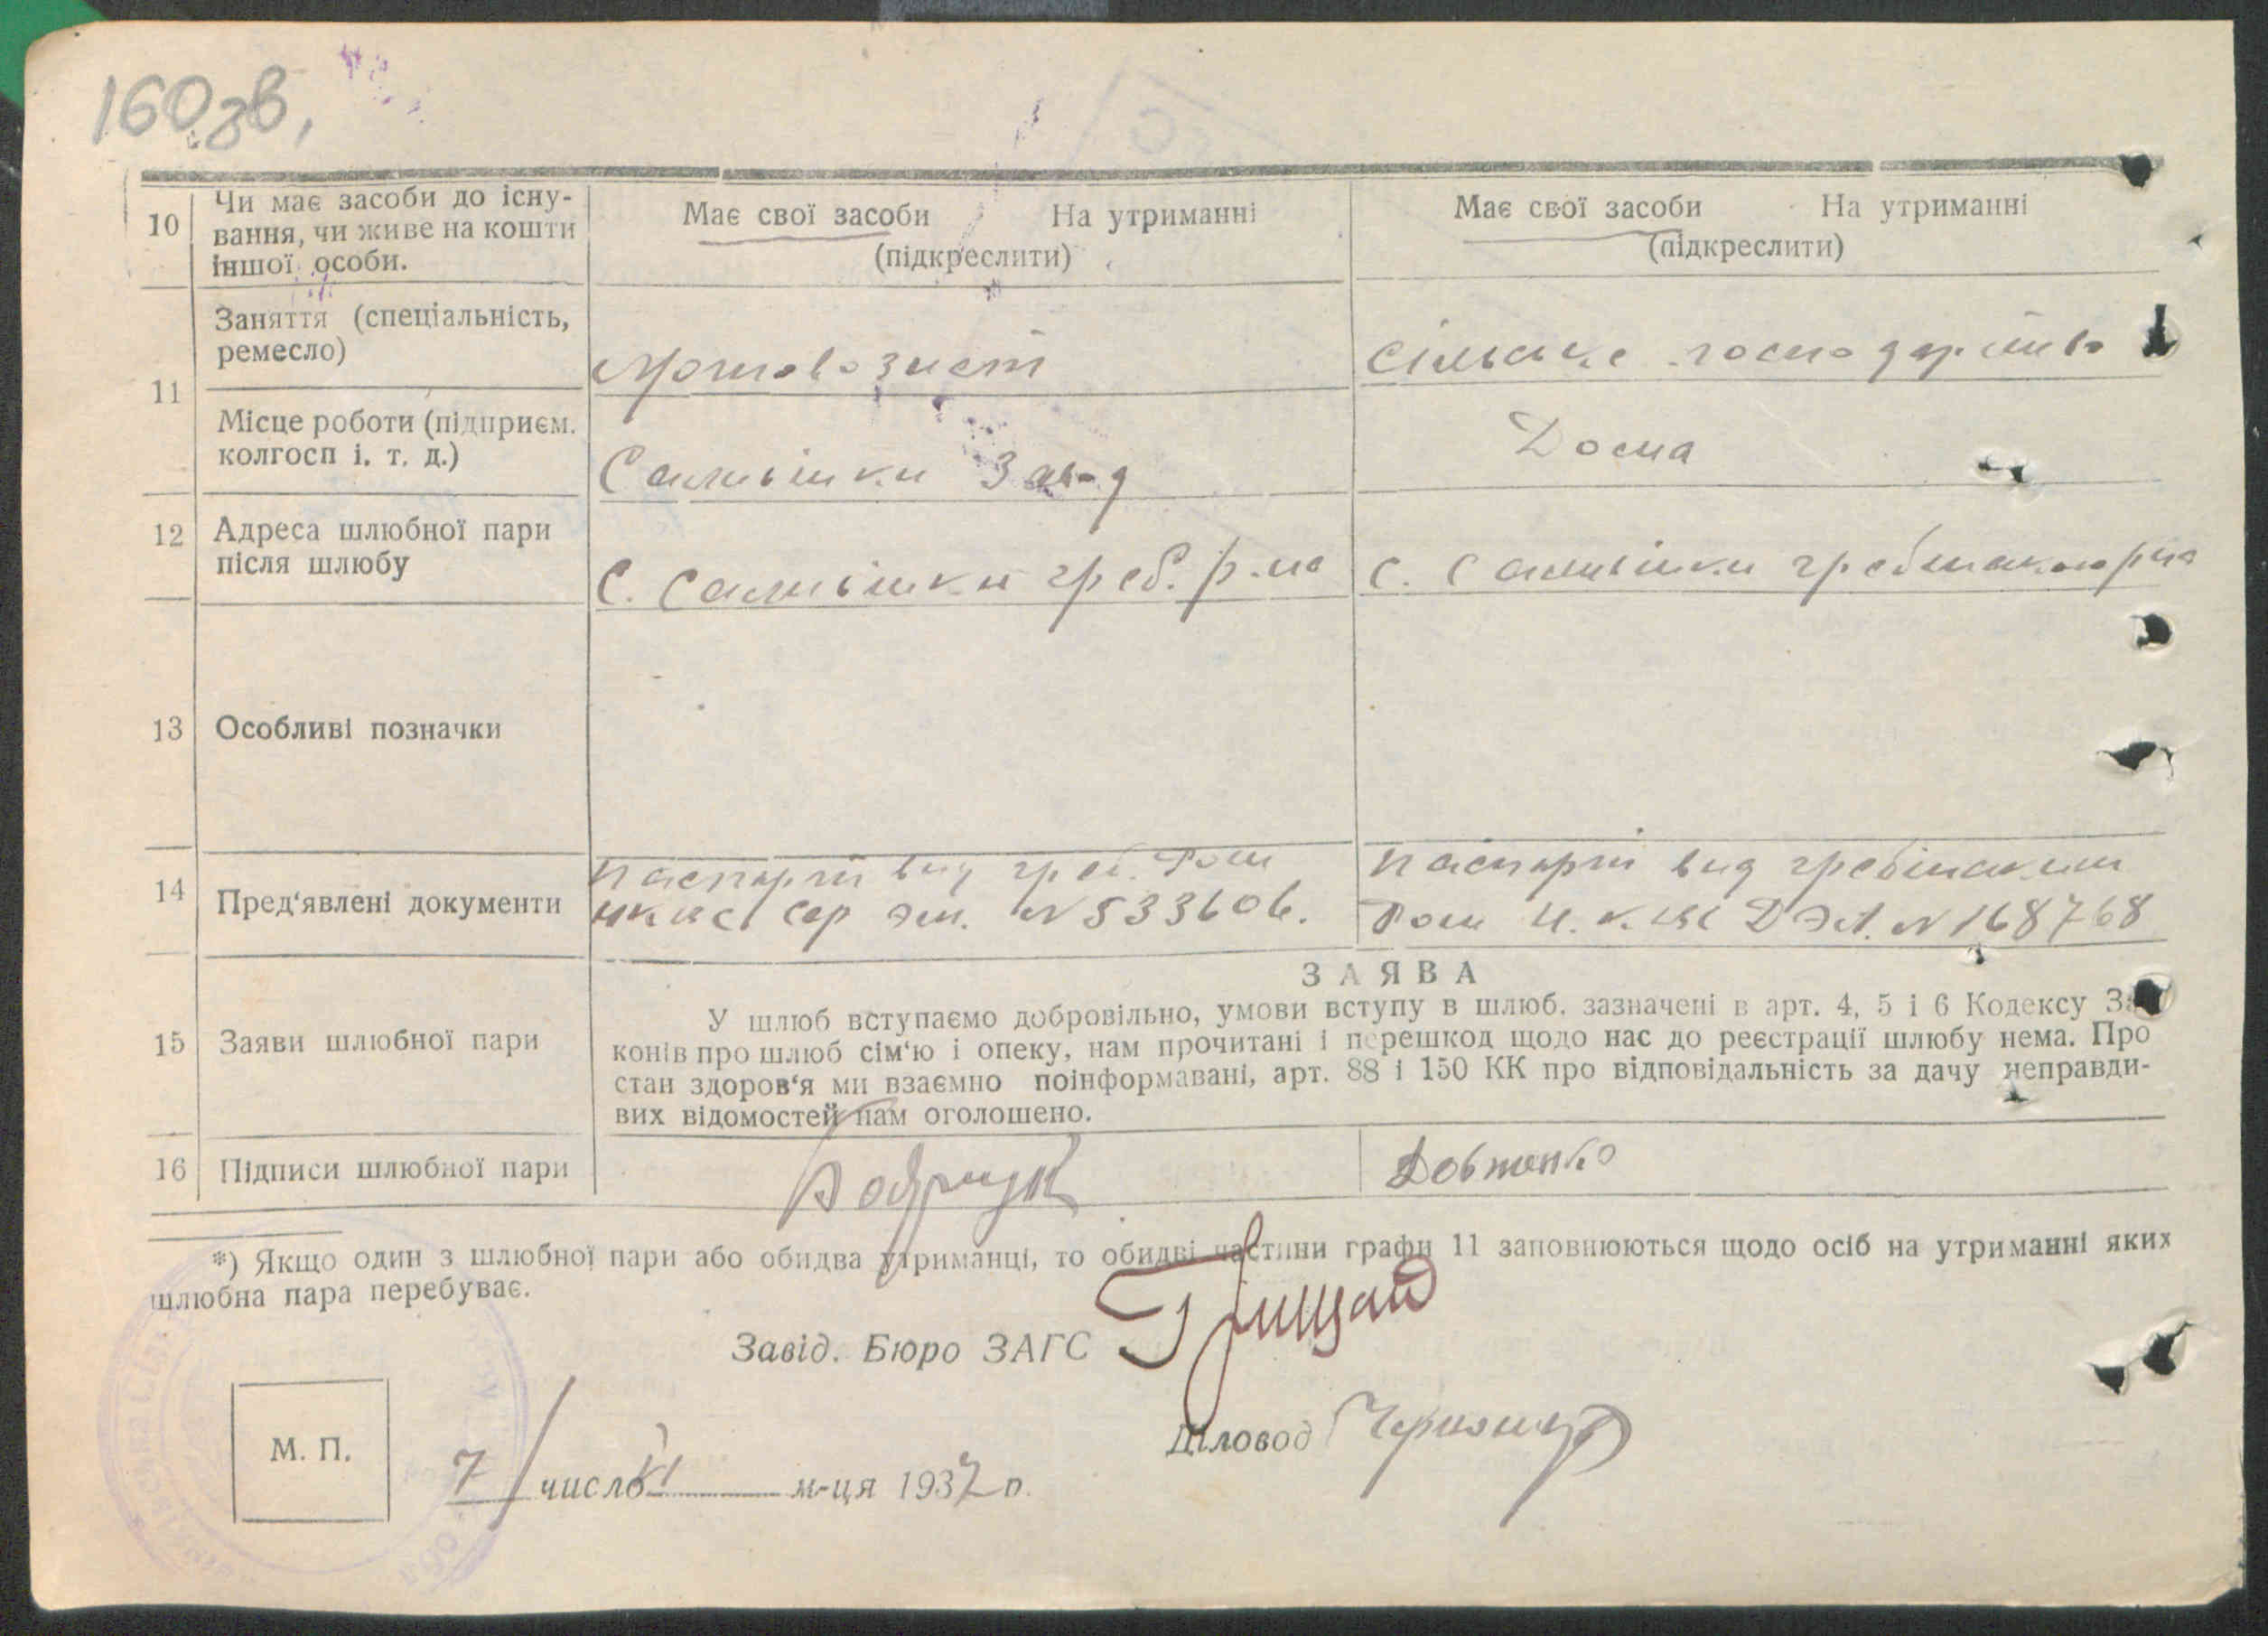 160зв,
10 Чи має засоби до існу-
вання, чи живе на кошти
іншої особи.
Має свої засоби На утриманні
(підкреслити)
Має свої засоби На утриманні
(підкреслити)
11
Заняття (спеціальність,
ремесло)
Мотовозист
Сільське господарство
Місце роботи (підприєм.
колгосп і. т. д.)
Салившки Завод
Дома
12 Адреса шлюбної пари
після шлюбу
С. Салившки греб. р-на
С. Салившки гребінак р-на
13 Особливі позначки
14 Пред'явлені документи
Паспорт вид греб.
НКВС сер эл. N 533606.
Паспорт вид
Н.К.ВС ДЭЛ. N 168768
15 Заяви шлюбної пари
ЗАЯВА
У шлюб вступаємо добровільно, умови вступу в шлюб, зазначені в арт. 4, 5 і 6 Кодексу За-
конів про шлюб сім'ю і опеку, нам прочитані і перешкод щодо нас до реєстрації шлюбу нема. Про
стан здоров'я ми взаємно поінформавані, арт. 88 і 150 КК про відповідальність за дачу неправди-
вих відомостей нам оголошено.
16 Підписи шлюбної пари
Довженко
*) Якщо один з шлюбної пари або обидва утриманці, то обидві частини графи 11 заповнюються щодо осіб на утриманні яких
шлюбна пара перебуває.
Завід. Бюро ЗАГС
Діловод
М. П.
7 число VI м-ця 1937 р.